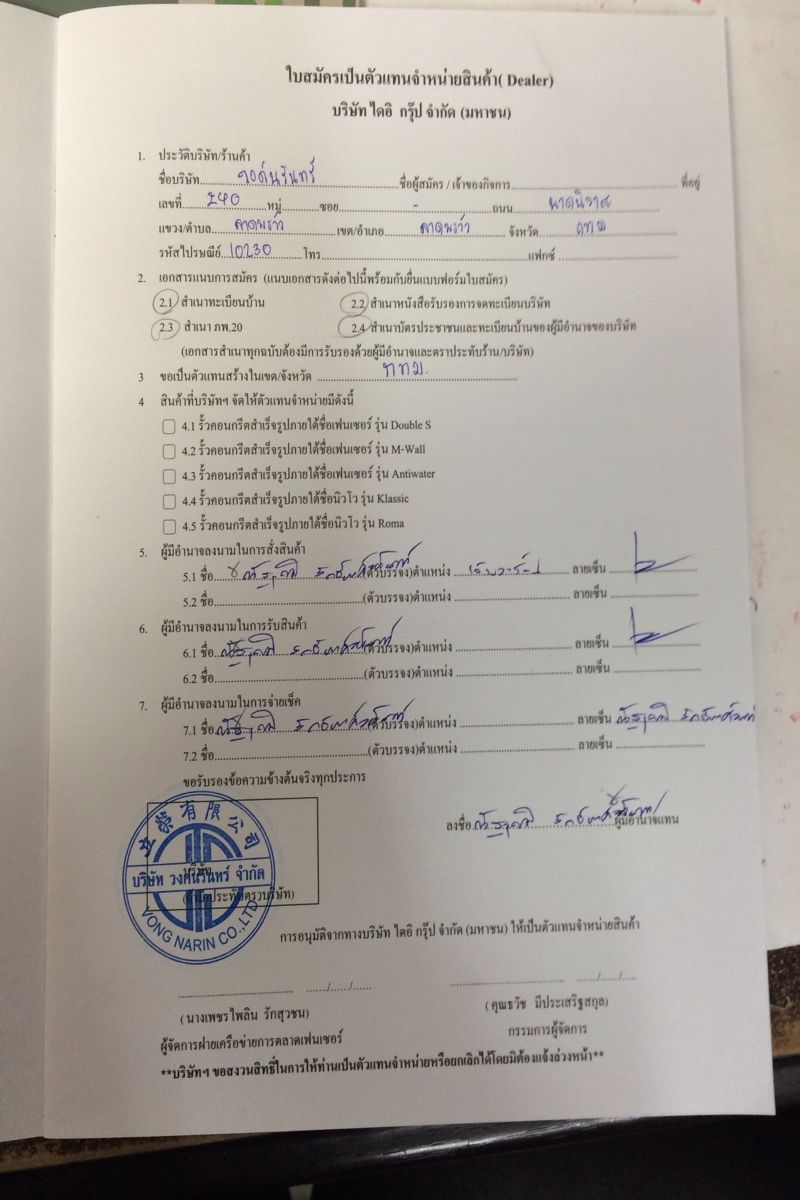 ใบสมัครเป็นตัวแทนจำหน่ายสินค้า( Dealer)
บริษัท ไดอิ กรุ๊ป จำกัด (มหาชน)
1. ประวัติบริษัท/ร้านค้า
ชื่อบริษัท วงศ์นรินทร์ ชื่อผู้สมัคร / เจ้าของกิจการ ที่อยู่
เลขที่ 240 หมู่ ซอย - ถนน นาคนิวาส
แขวง/ตำบล ลาดพร้าว เขต/อำเภอ ลาดพร้าว จังหวัด กทม
รหัสไปรษณีย์ 10230 โทร แฟกซ์
2. เอกสารแนบการสมัคร (แนบเอกสารดังต่อไปนี้พร้อมกับยื่นแบบฟอร์มใบสมัคร)
2.1 สำเนาทะเบียนบ้าน 2.2 สำเนาหนังสือรับรองการจดทะเบียนบริษัท
2.3 สำเนา ภพ.20 2.4 สำเนาบัตรประชาชนและทะเบียนบ้านของผู้มีอำนาจของบริษัท
(เอกสารสำเนาทุกฉบับต้องมีการรับรองด้วยผู้มีอำนาจและตราประทับร้าน/บริษัท)
3 ขอเป็นตัวแทนสร้างในเขต/จังหวัด กทม.
4 สินค้าที่บริษัทฯ จัดให้ตัวแทนจำหน่ายมีดังนี้
4.1 รั้วคอนกรีตสำเร็จรูปภายใต้ชื่อเฟนเซอร์ รุ่น Double S
4.2 รั้วคอนกรีตสำเร็จรูปภายใต้ชื่อเฟนเซอร์ รุ่น M-Wall
4.3 รั้วคอนกรีตสำเร็จรูปภายใต้ชื่อเฟนเซอร์ รุ่น Antiwater
4.4 รั้วคอนกรีตสำเร็จรูปภายใต้ชื่อนิวโว รุ่น Klassic
4.5 รั้วคอนกรีตสำเร็จรูปภายใต้ชื่อนิวโว รุ่น Roma
5. ผู้มีอำนาจลงนามในการสั่งสินค้า
5.1 ชื่อ (ตัวบรรจง)ตำแหน่ง ลายเซ็น
5.2 ชื่อ (ตัวบรรจง)ตำแหน่ง ลายเซ็น
6. ผู้มีอำนาจลงนามในการรับสินค้า
6.1 ชื่อ (ตัวบรรจง)ตำแหน่ง ลายเซ็น
6.2 ชื่อ (ตัวบรรจง)ตำแหน่ง ลายเซ็น
7. ผู้มีอำนาจลงนามในการจ่ายเช็ค
7.1 ชื่อ (ตัวบรรจง)ตำแหน่ง ลายเซ็น
7.2 ชื่อ (ตัวบรรจง)ตำแหน่ง ลายเซ็น
ขอรับรองข้อความข้างต้นจริงทุกประการ
ลงชื่อ ผู้มีอำนาจแทน
榮有限公司
บริษัท
บริษัท วงศ์นรินทร์ จำกัด
ประทับตราบริษัท)
VONG NARIN CO.,LTD.
การอนุมัติจากทางบริษัท ไดอิ กรุ๊ป จำกัด (มหาชน) ให้เป็นตัวแทนจำหน่ายสินค้า
(นางเพชรไพลิน รักสุวชน) (คุณธวัช มีประเสริฐสกุล)
ผู้จัดการฝ่ายเครือข่ายการตลาดเฟนเซอร์ กรรมการผู้จัดการ
**บริษัทฯ ขอสงวนสิทธิ์ในการให้ท่านเป็นตัวแทนจำหน่ายหรือยกเลิกได้โดยมิต้องแจ้งล่วงหน้า**